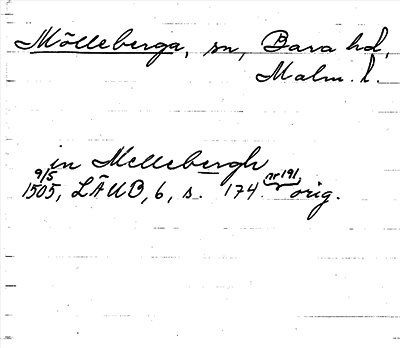 Mölleberga, sn, Bara hd,
Malm. l.
in Mellebergh
9/5
1505, LÄUB, 6, s. 174. nr 191, orig.